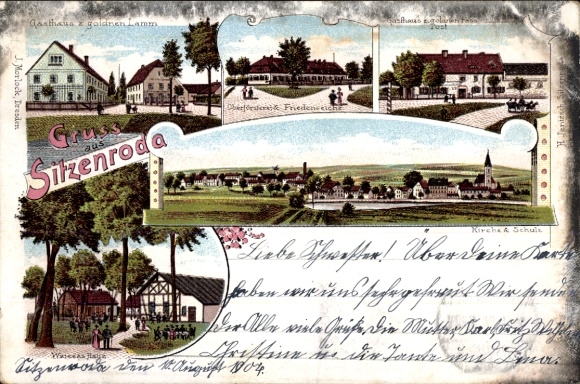 Gasthaus z. goldnen Lamm
Oberförsterei & Friedenseiche
Gasthaus z. goldnen Fass
Post
J. Morlock, Dresden
Gruss
aus
Sitzenroda
Kirche & Schule
Waisenhaus
Liebe Schwester! Über deine Karte
haben wir uns sehr gefreut Wir senden
dir Alle viele Grüße, die Mutter Karl
Christine u. die Tante und
Sitzenroda den August 1904.